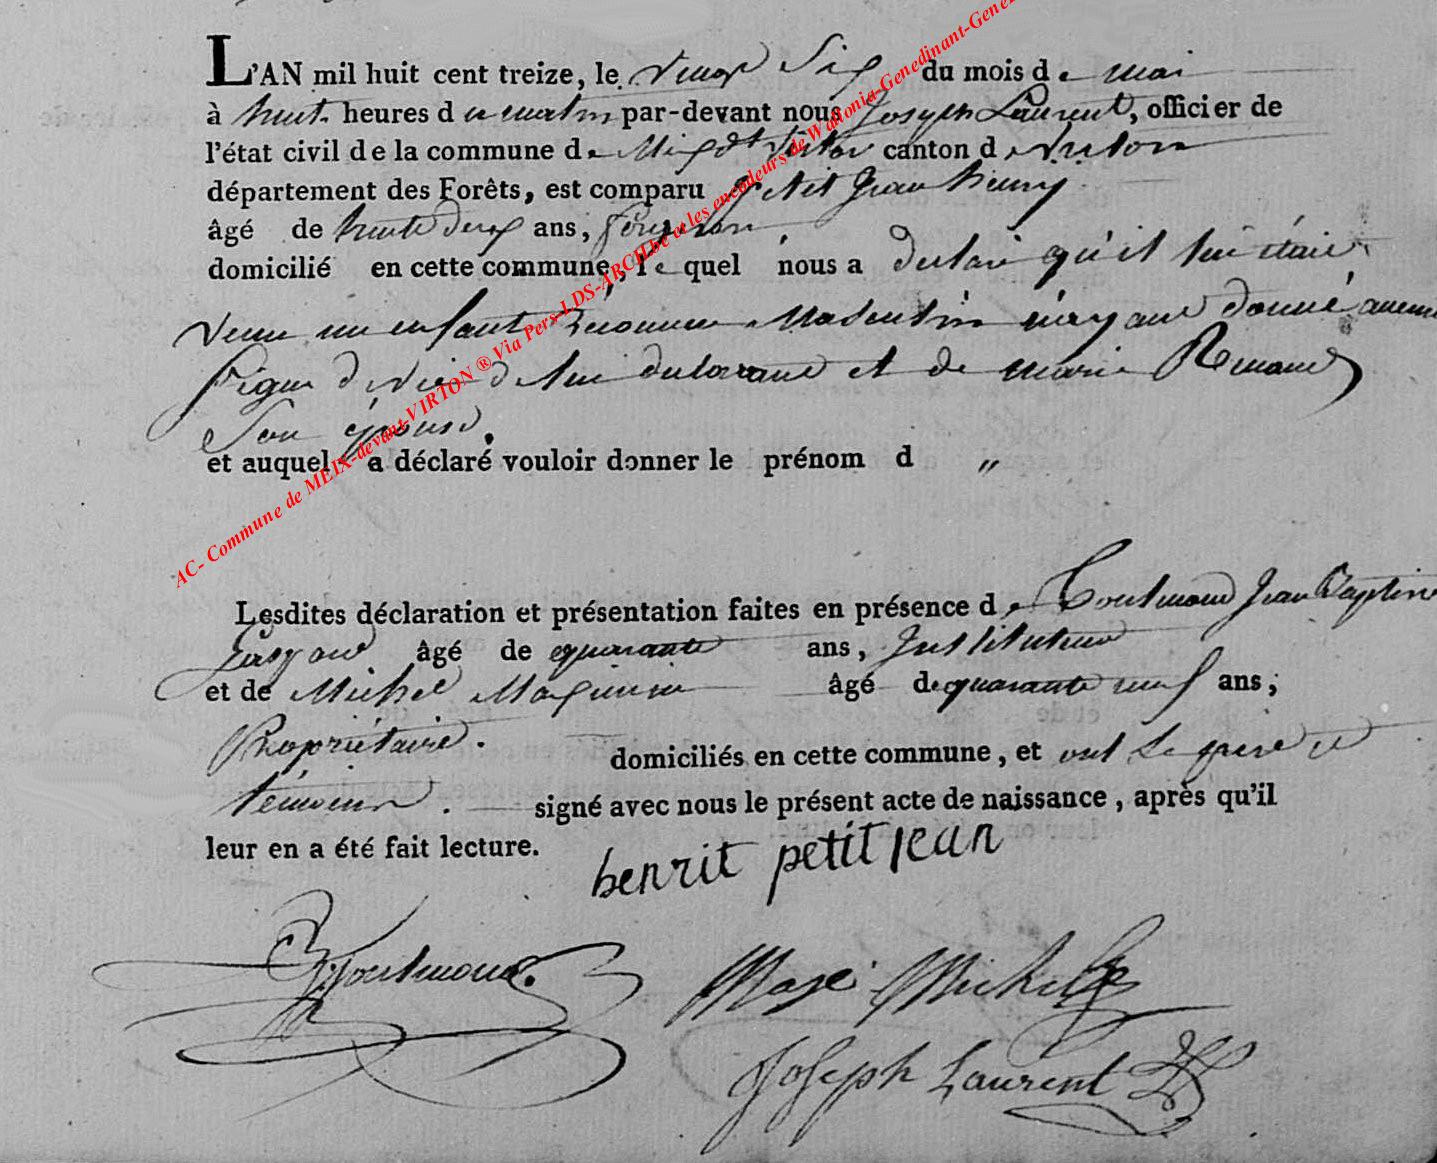 L'AN mil huit cent treize, le vingt Six du mois de mai
à huit heures du matin par-devant nous Joseph Laurent, officier de
l'état civil de la commune de Meix dt Virton canton de Virton
département des Forêts, est comparu Petit Jean henry
âgé de trente deux ans,
domicilié en cette commune, le quel nous a declaré qu'il lui étoit
venu un enfant reconnu Masculin n'ayant donné aucun
signe de vie de lui declarant et de marie
Son épouse,
et auquel a déclaré vouloir donner le prénom d "
AC- Commune de MEIX-devant-VIRTON ® Via Pers-LDS-ARCH.be et les encodeurs de Wallonia-Genedinant-Gene
Lesdites déclaration et présentation faites en présence de Jean Baptiste
âgé de quarante ans, Instituteur
et de Michel âgé de quarante neuf ans;
Propriétaire. domiciliés en cette commune, et ont le père et
témoins. signé avec nous le présent acte de naissance, après qu'il
leur en a été fait lecture.
henrit petit jean
Michel
Joseph Laurent